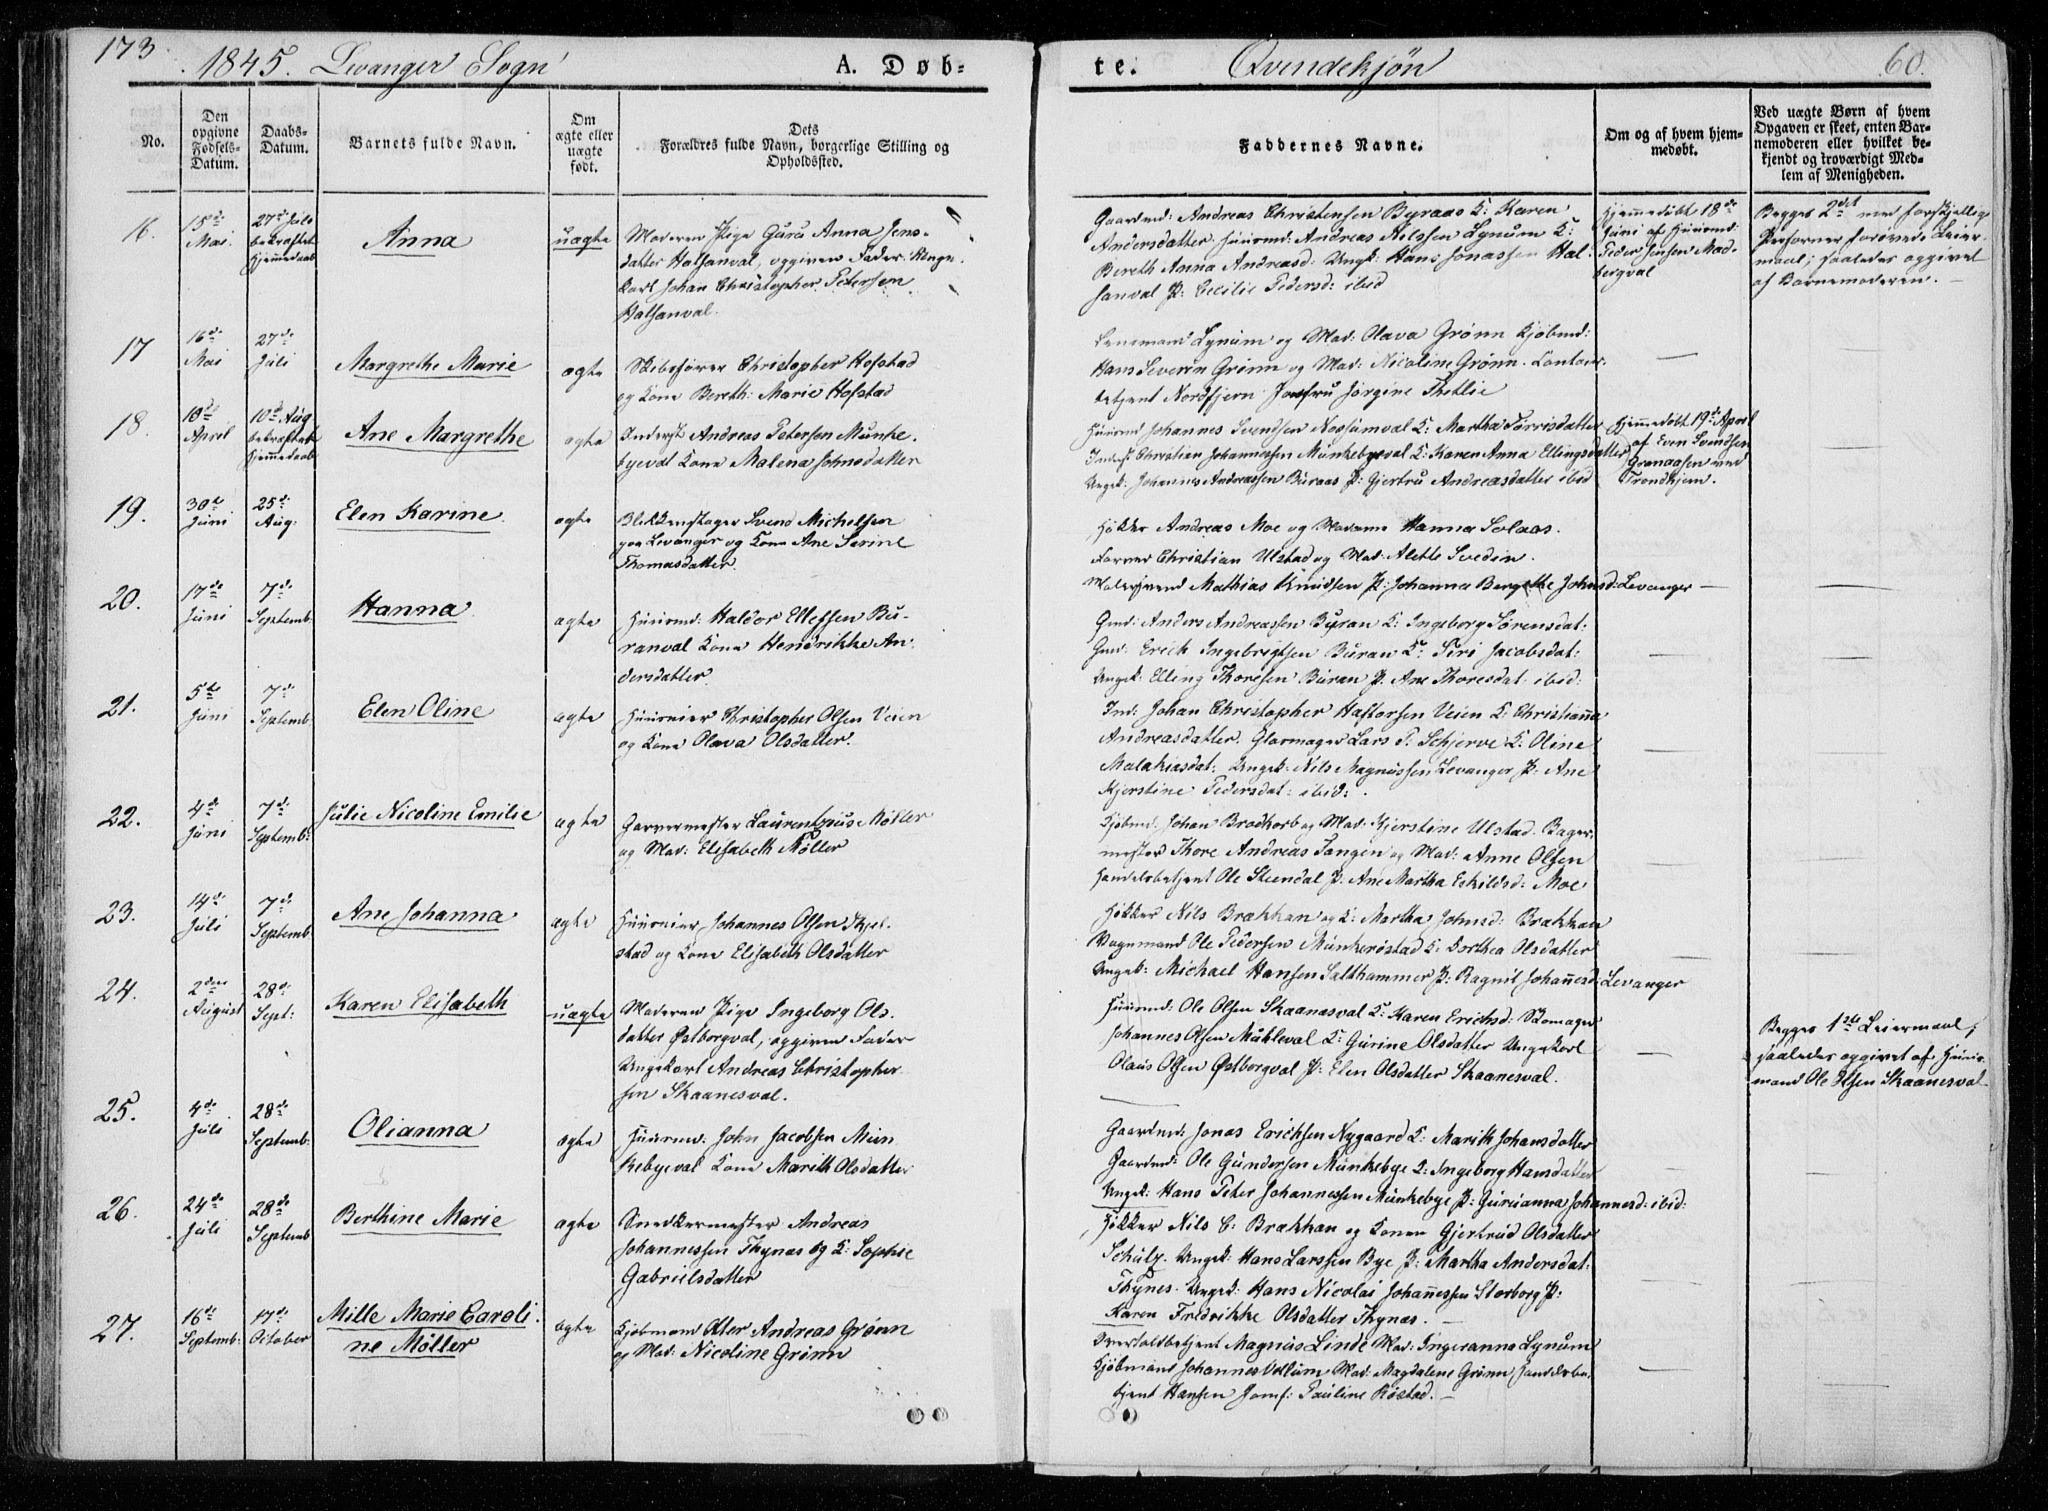 173.
1845. Levanger Sogn
A. Døb-
te.
Qvindekjøn
60.
No.
Den opgivne Fødsels-Datum.
Daabs-Datum.
Barnets fulde Navn.
Om ægte eller uægte født.
Dets Forældres fulde Navn, borgerlige Stilling og Opholdssted.
Faddernes Navne.
Om og af hvem hjemmedøbt.
Ved uægte Børn af hvem Opgaven er skeet, enten Barnemoderen eller hvilket bekjendt og troværdigt Medlem af Menigheden.
16.
15de Mai
27de Juli bekræftet Hjemmedaab
Anna
uægte
Moderen Pige Guru Anna Jens-
datter Halsanval, opgiven Fader: Unge-
karl Johan Christopher Petersen
Halsanval.
Gaardmd: Andreas Christensen Byraas K: Karen
Andersdatter. Huusmd: Andreas Nilssen Lynum K:
Bereth Anna Andreasd: Ungk: Hans Jonassen Hal-
sanval P: Cecilie Pedersd: ibid
Hjemmedøbt 18de
Juni af Huusmd:
Peder Jensen Mad-
bergval
Begges 2det med forskjellige
Personer forøvede Leier-
maal; saaledes opgivet
af Barnemoderen. –
17
16de Mai
27de Juli
Margrethe Marie
ægte
Skibsfører Christopher Hofstad
og Kone Bereth Marie Hofstad
Lensmand Lynum og Mad: Olava Grønn Kjøbmd:
Hans Severin Grønn og Mad: Nicoline Grønn. Contoir-
betjent Nordfjern Jomfru Jørgine Thellie
18.
18de April
10de Aug bekræftet Hjemmedaab
Ane Margrethe
ægte
Inderst Andreas Petersen Munke-
byeval Kone Malena Johnsdatter
Huusmd Johannes Svendsen Nossumval K: Martha Torrisdatter
Inders: Christian Johannessen Munkebyeval K: Karen Anna Ellingsdatter
Ungk: Johannes Andreassen Buraas P: Gjertru Andreasdatter ibid
Hjemmedøbt 19de April
af Even Svendsen
Granaasen ved
Trondhjem.
19.
30te Juni
25de Aug:
Elen Karine
ægte
Blikkenslager Svend Michelsen
paa Levanger og Kone Ane Serine
Thomasdatter.
Høkker Andreas Moe og Madame Hanna Solaas.
Farver Christian Ulstad og Mad: Alette Svedin.
Malersvend Mathias Knudsen P: Johanna Bergithe Johnsd: Levanger
20.
17de Juni
7de Septemb:
Hanna
ægte
Huusmd: Haldor Ellefsen Bu-
ranval Kone Hendrikke An-
dersdatter
Gmd: Anders Andreassen Buran K: Ingeborg Sørensdat:
Gmd: Erich Ingebrigtsen Buran K: Siri Jacobsdat:
Ungk: Elling Thoresen Buran P: Ane Thoresdat: ibid:
21.
5te Juni
7de Septemb:
Elen Oline
ægte
Huusmier Christopher Olsen Veien
og Kone Olava Olsdatter.
Ind: Johan Christopher Haftorsen Veien K: Christianna
Andreasdatter. Glarmager Lars P. Schjerve K: Oline
Malakiasdat: Ungk: Nils Magnussen Levanger P: Ane
Kjerstine Pedersdat: ibid:
22.
4de Juni
7de Septemb:
Julie Nicoline Emilie
ægte
Garvermester Laurentzius Møller
og Mad: Elisabeth Møller
Kjøbmd. Johan Brodkorb og Mad: Kjerstine Ulstad. Bager-
mester Thore Andreas Tangen og Mad: Anne Olsen
Handelsbetjent Ole Stendal P: Ane Martha Eskildsd: Moe
23.
14de Juli
7de Septemb.
Ane Johanna
ægte
Huusmier Johannes Olsen Skjel-
stad og Kone Elisabeth Olsdatter
Høkker Nils Brækkan og K: Martha Johnsd: Brækkan
Vognmand Ole Pedersen Munkerøstad K: Dorthea Olsdatter
Ungk: Michael Hansen Salthammer P: Ragnil Johannesd: Levanger
24.
2den August
28de Sept:
Karen Elisabeth
uægte
Moderen Pige Ingeborg Ols-
datter Østborgval, opgiven Fader
Ungekarl Andreas Christopher-
sen Skaanesval.
Huusmd: Ole Olsen Skaanesval K: Karen Erichsd: Skomager
Johannes Olsen Mühleval K: Gurine Olsdatter Ungekarl
Olaus Olsen Østborgval P: Elen Olsdatter Skaanesval.
Begges 1ste Leiermaal;
saaledes opgivet af Huus-
mand Ole Olsen Skaanesval
25.
4de Juli
28de Septemb:
Olianna
ægte
Huusmd: John Jacobsen Mun-
kebyeval Kone Marith Olsdatter
Gaardmd: Jonas Erichsen Nygaard K: Marith Johansdatter
Gaardmd: Ole Gundersen Munkebye K: Ingeborg Hansdatter
Ungk: Hans Peter Johannessen Munkebye P: Guruanna Johannesd: ibid:
26.
24de Juli
28de Septemb
Berthine Marie
ægte
Snedkermester Andreas
Johannessen Thynæs og K: Sophie
Gabrielsdatter
Høkker Nils C. Brækkan og Konen Gjertrud Olsdatter
Schulz. Ungk: Hans Larssen Bye P: Martha Andersdat:
Thynes. Ungk: Hans Nicolai Johannessen Storborg P:
Karen Fredrikke Olsdatter Thynæs. –
27.
16de Septemb:
17de October
Mille Marie Caroli-
ne Møller
ægte
Kjøbmand Otter Andreas Grønn
og Mad: Nicoline Grønn
Overtoldbetjent Magnus Linde Mad: Ingeranna Lynum
Kjøbmand Johannes Udlum Mad: Magdalene Grønn, Handelsbe-
tjent Hansen Jomf: Pauline Røstad. –